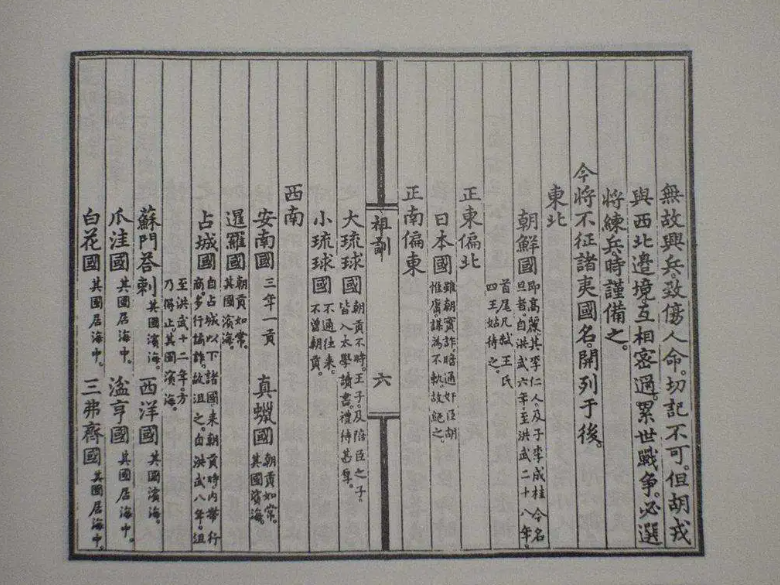 無故興兵。致傷人命。切記不可。但胡戎
與西北邊境。互相密邇。累世戰爭。必選
將練兵。時謹備之。
今將不征諸夷國名。開列于後。
東北
朝鮮國 即高麗。其李仁人。及子李成桂。今名
旦者。自洪武六年。至洪武二十八年。
首尾凡弒王氏
四王。姑待之。
正東偏北
日本國 雖朝實詐。暗通奸臣胡
惟庸。謀為不軌。故絕之。
正南偏東
祖訓 六
大琉球國 朝貢不時。王子及陪臣之子。
皆入太學讀書。禮待甚厚。
小琉球國 不通往來。
不曾朝貢。
西南
安南國 三年一貢 真蠟國 朝貢如常。
其國濱海。
暹羅國 朝貢如常。
其國濱海。
占城國 自占城以下諸國。來朝貢時。內帶行
商。多行譎詐。故沮之。自洪武八年。沮
至洪武十二年。方
乃得止。其國濱海。
蘇門荅剌 其國濱海。 西洋國 其國濱海。
爪洼國 其國居海中。 湓亨國 其國居海中。
白花國 其國居海中。 三弗齊國 其國居海中。